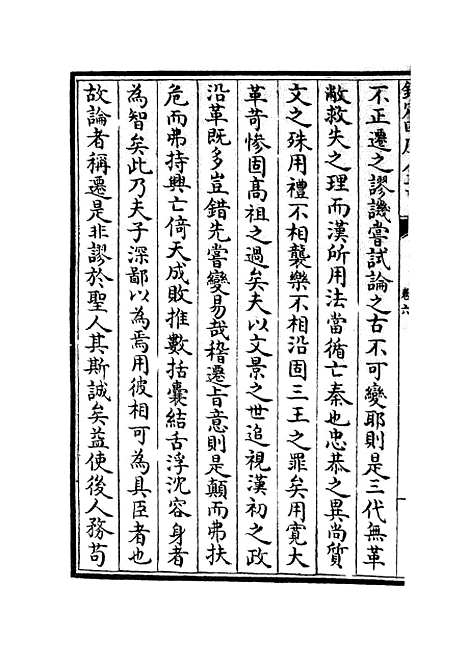 欽定四庫全書
卷六
不正遷之謬譏嘗試論之古不可變耶則是三代無革
敝救失之理而漢所用法當循亡秦也忠恭之異尚質
文之殊用禮不相襲樂不相沿固三王之罪矣用寛大
革苛慘固髙祖之過矣夫以文景之世追視漢初之政
沿革既多豈錯先嘗變易哉稽遷㫖意則是顛而弗扶
危而弗持興亡倚天成敗推數括囊結舌浮沈容身者
為智矣此乃夫子深鄙以為焉用彼相可為具臣者也
故論者稱遷是非謬於聖人其斯誠矣益使後人務苟